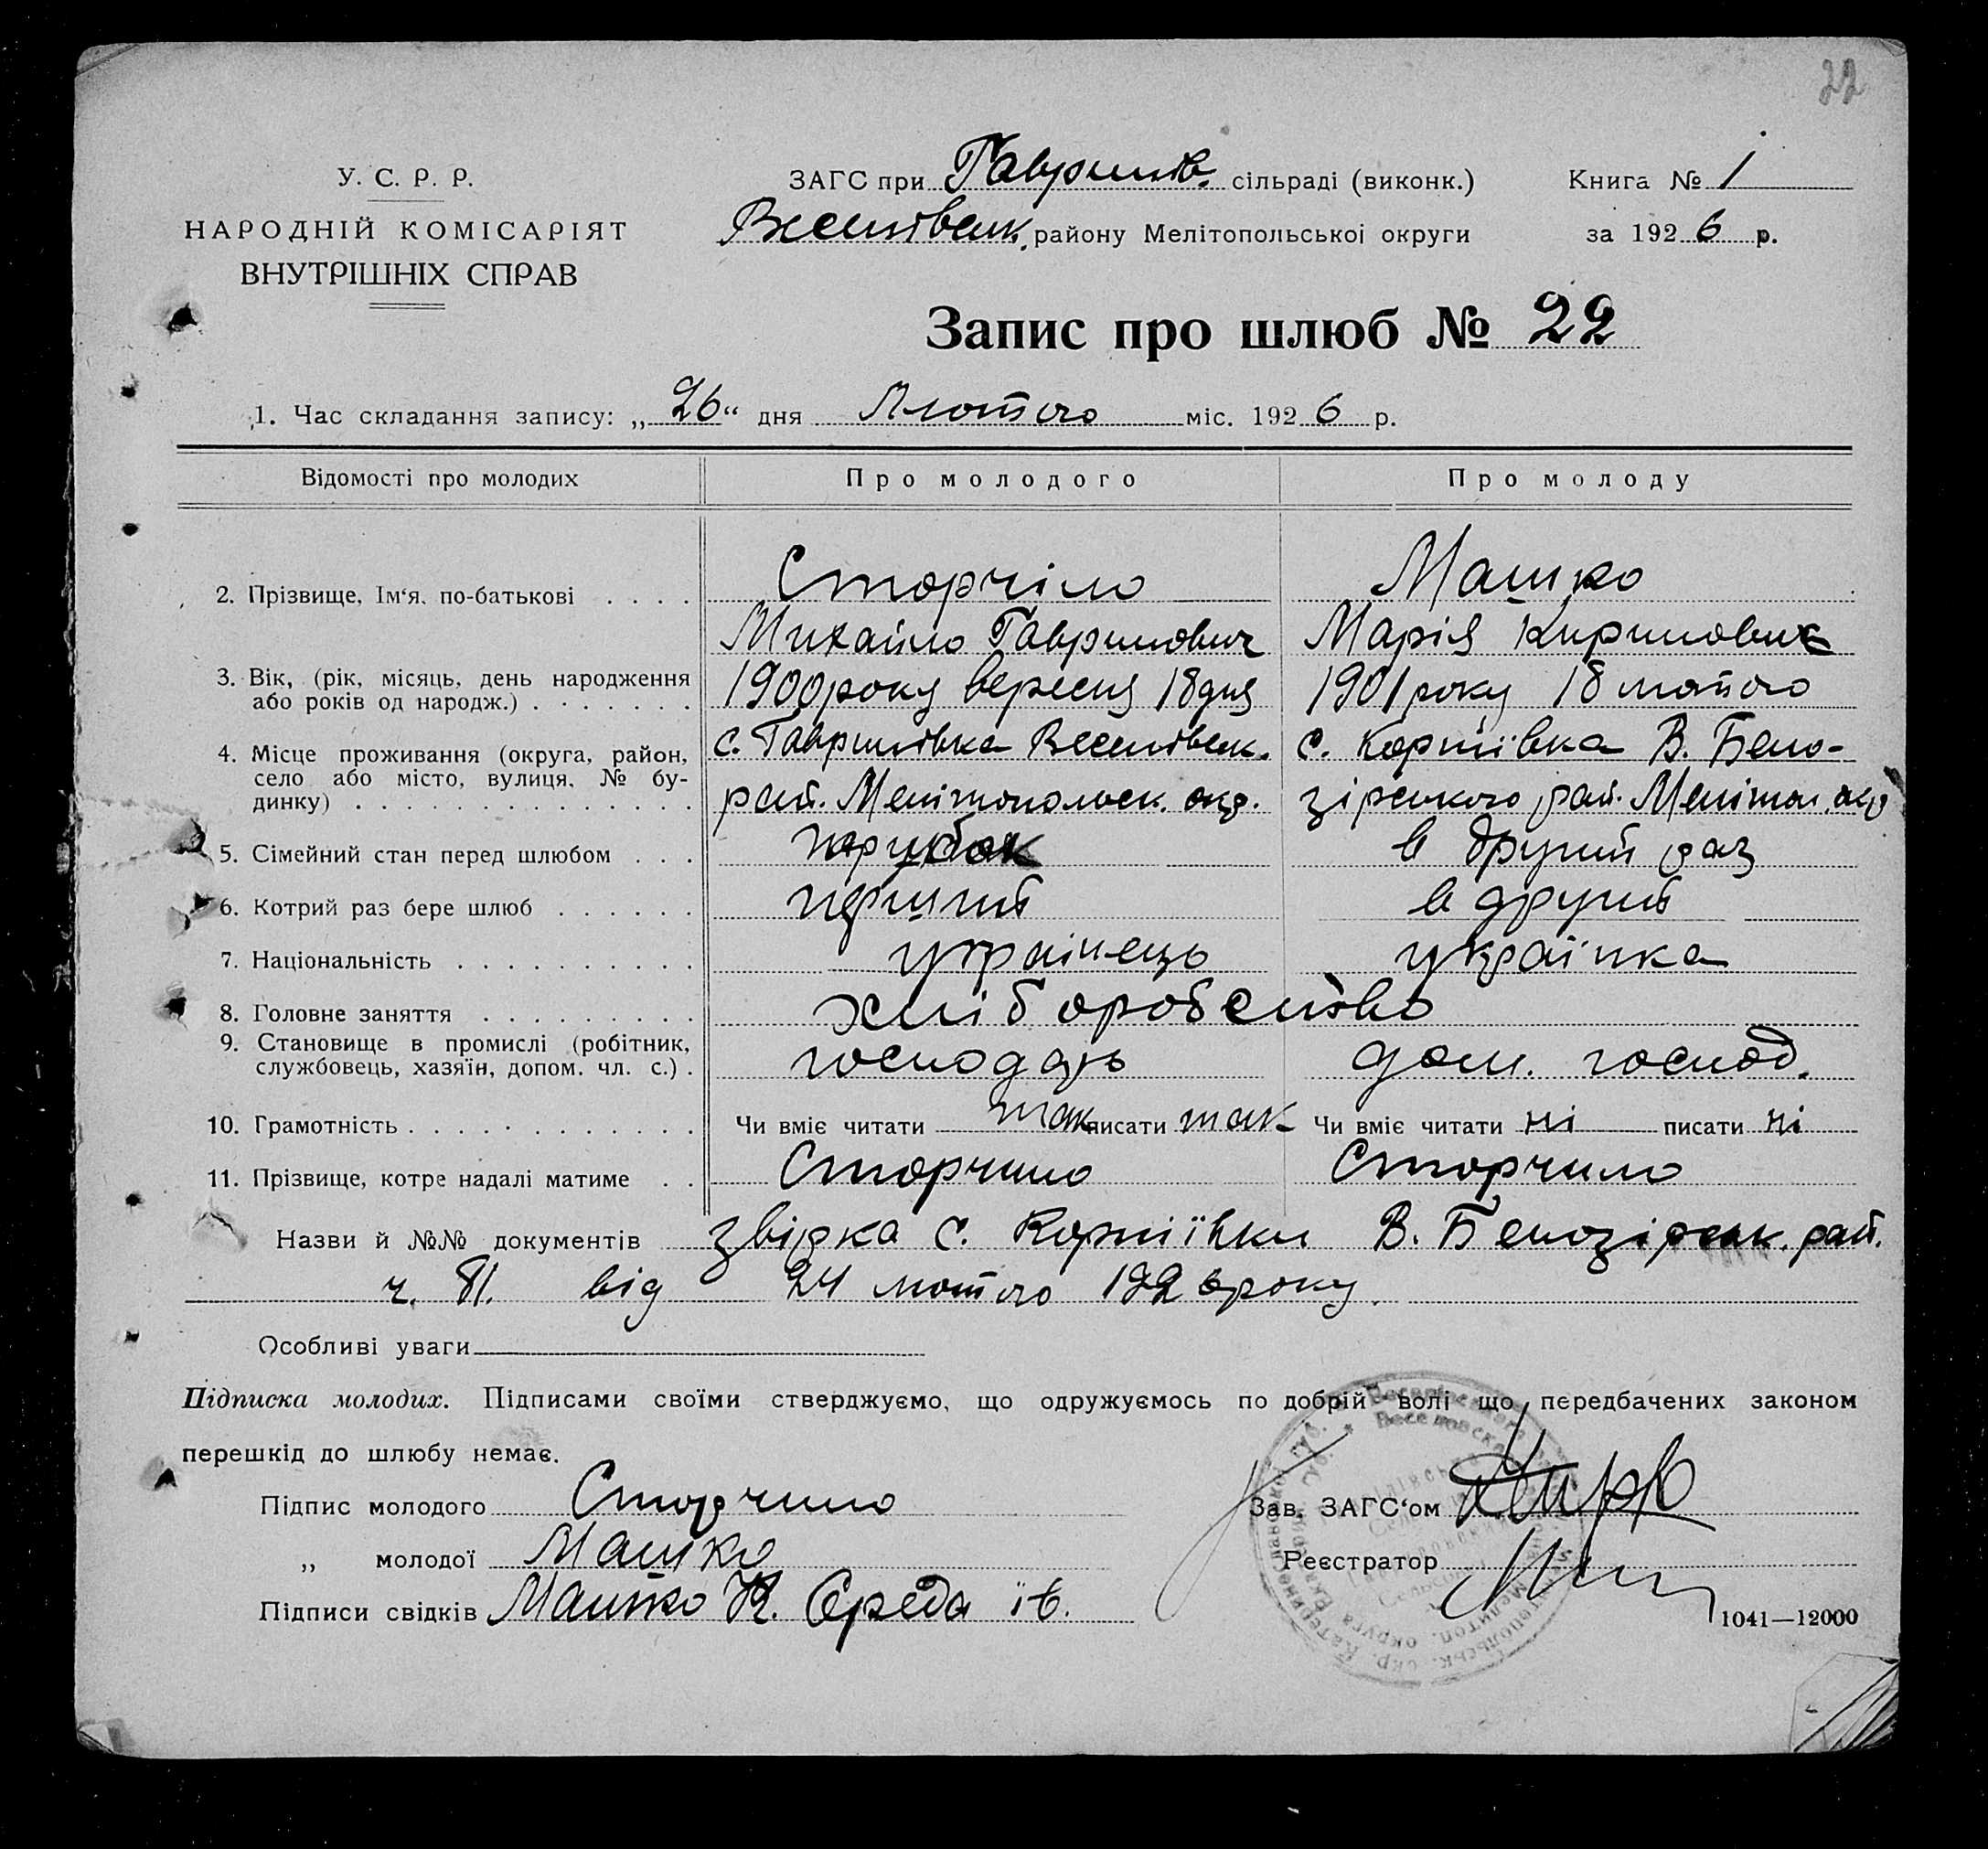 22
У. С. Р. Р.
НАРОДНІЙ КОМІСАРІЯТ
ВНУТРІШНІХ СПРАВ
ЗАГС при Гаврилів. сільраді (виконк.)
Веселівськ. району Мелітопольської округи
Книга № 1
за 1926 р.
Запис про шлюб № 22
1. Час складання запису: „26“ дня Лютого міс. 1926 р.
Відомості про молодих
Про молодого
Про молоду
2. Прізвище, Ім‘я, по-батькові . . . .
Сторчіло
Михайло Гаврилович
Машко
Марія Кирилов
3. Вік, (рік, місяць, день народження
або років од народж.) . . . . . . .
1900 року вересня 18 дня
1901 року 18 лютого
4. Місце проживання (округа, район,
село або місто, вулиця, № бу-
динку) . . . . . . . . . . . . . .
с. Гаврилівка Веселівськ.
рай. Мелітопольськ. окр.
с. Корніївка В. Бело-
зірського рай. Мелітоп. окр
5. Сімейний стан перед шлюбом . . .
парубок
в другий раз
6. Котрий раз бере шлюб . . . . . .
перший
в другий
7. Національність . . . . . . . . . .
українець
українка
8. Головне заняття . . . . . . . . .
хліборобство
9. Становище в промислі (робітник,
службовець, хазяїн, допом. чл. с.) .
господарь
дом. господ.
10. Грамотність . . . . . . . . . . . .
Чи вміє читати так писати так
Чи вміє читати ні писати ні
11. Прізвище, котре надалі матиме . .
Сторчило
Сторчило
Назви й №№ документів звідка с. Корніївки В. Белозірськ. рай.
ч. 81. від 24 лютого 1926 року.
Особливі уваги
Підписка молодих. Підписами своїми стверджуємо, що одружуємось по добрій волі що передбачених законом
перешкід до шлюбу немає.
Підпис молодого Сторчило
„ молодої Машко
Підписи свідків Машко К. Середа ів.
Зав. ЗАГС‘ом
Реєстратор
1041—12000